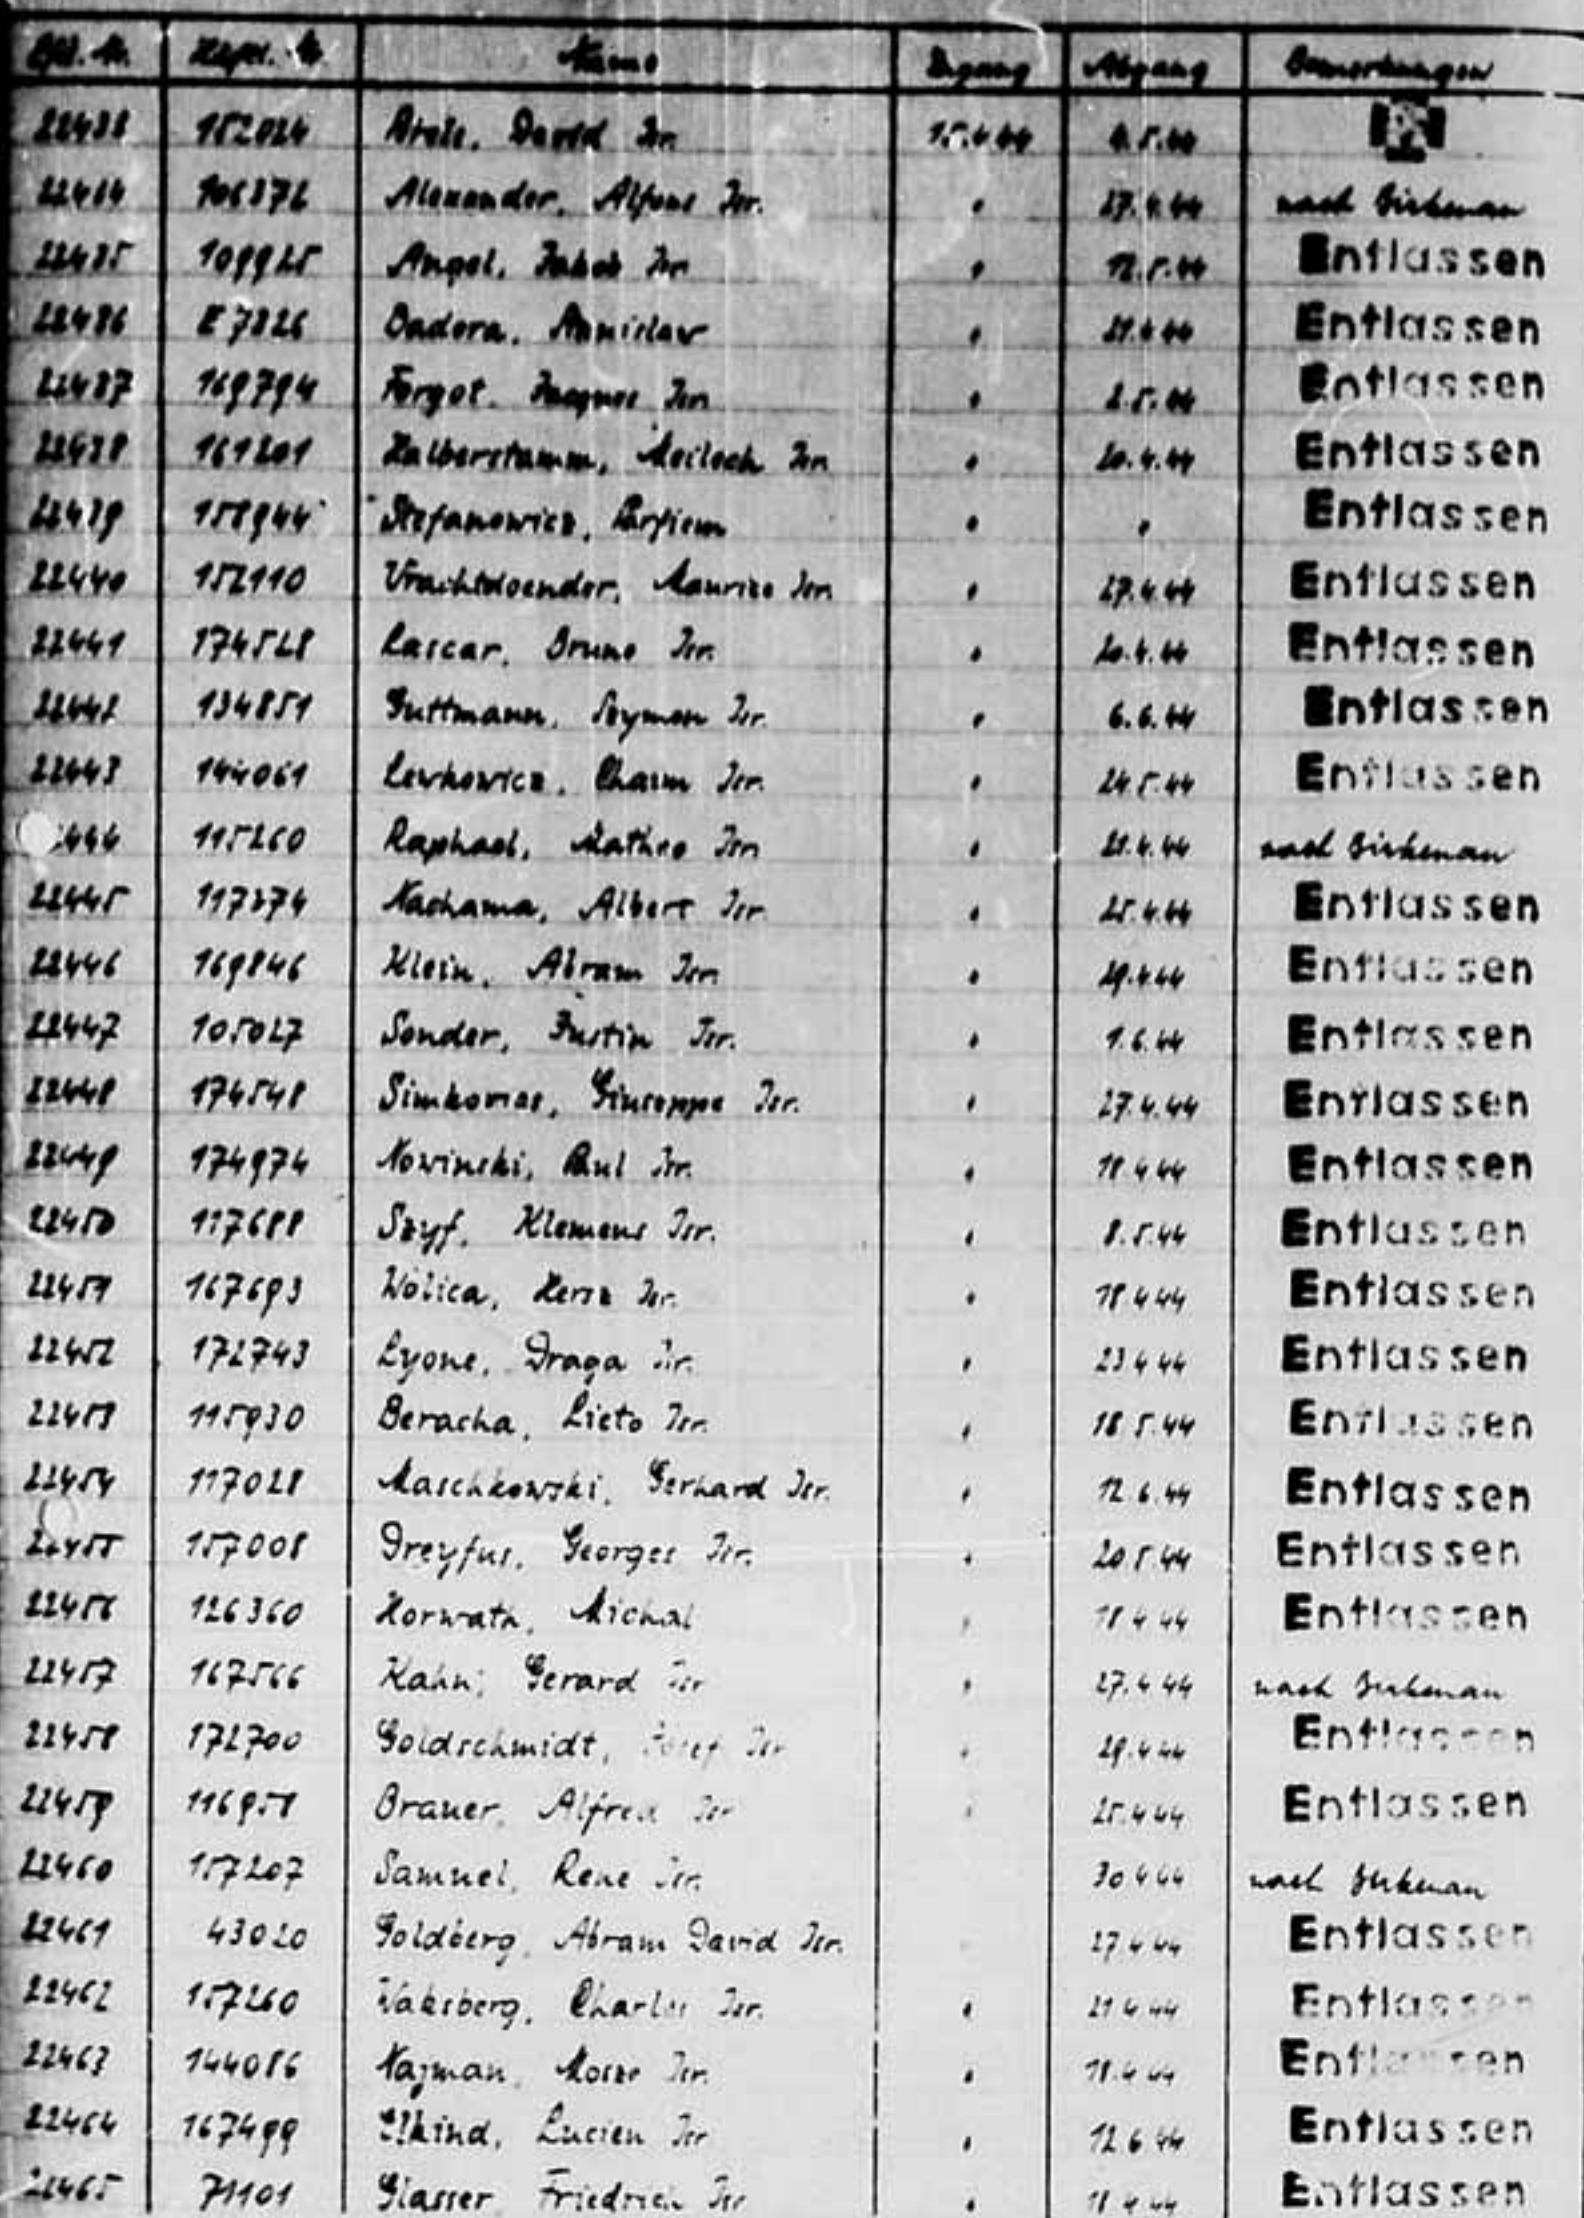 Lfd. Nr. Häftl. Nr. Name Zugang Abgang Bemerkungen
22433 152024 David Isr. 15.4.44
22434 106372 Alexander, Alfons Isr. " 27.4.44 nach Birkenau
22435 109925 Angel, Jakob Isr. " 12.5.44 Entlassen
22436 E 7326 Badora, " 21.4.44 Entlassen
22437 169794 Forgot, Jacques Isr. " 2.5.44 Entlassen
22438 161201 Halberstamm, Meilech Isr. " 20.4.44 Entlassen
22439 158944 Stefanowicz, " " Entlassen
22440 152110 Vrachtdoender, Maurice Isr. " 27.4.44 Entlassen
22441 174528 Lascar, Bruno Isr. " 20.4.44 Entlassen
22442 134851 Guttmann, Szymon Isr. " 6.6.44 Entlassen
22443 144061 Lewkowicz, Chaim Isr. " 24.5.44 Entlassen
444 115260 Raphael, Matheo Isr. " 21.4.44 nach Birkenau
22445 117374 Nachama, Albert Isr. " 25.4.44 Entlassen
22446 169846 Klein, Abram Isr. " 29.4.44 Entlassen
22447 105027 Sonder, Justin Isr. " 1.6.44 Entlassen
22448 174548 Simkovias, Giuseppe Isr. " 27.4.44 Entlassen
22449 174974 Nowinski, Paul Isr. " 18.4.44 Entlassen
22450 117688 Szyf, Klemens Isr. " 8.5.44 Entlassen
22451 167693 Wolica, Hersz Isr. " 18.4.44 Entlassen
22452 172743 Lyone, Draga Isr. " 23.4.44 Entlassen
22453 115930 Beracha, Lieto Isr. " 18.5.44 Entlassen
22454 117028 Maschkowski, Gerhard Isr. " 12.6.44 Entlassen
22455 157008 Dreyfus, Georges Isr. " 20.5.44 Entlassen
22456 126360 Horwath, Michal " 18.4.44 Entlassen
22457 167566 Kahn, Gerard Isr. " 27.4.44 nach Birkenau
22458 172700 Goldschmidt, Josef Isr. " 29.4.44 Entlassen
22459 116951 Brauer, Alfred Isr. " 25.4.44 Entlassen
22460 157207 Samuel, René Isr. 30.4.44 nach Birkenau
22461 43020 Goldberg, Abram David Isr. 27.4.44 Entlassen
22462 157260 Waksberg, Charles Isr. " 21.4.44 Entlassen
22463 144086 Najman, Mosze Isr. " 18.4.44 Entlassen
22464 167499 Elkind, Lucien Isr. " 12.6.44 Entlassen
22465 71101 Glasser, Friedrich Isr. " 18.4.44 Entlassen